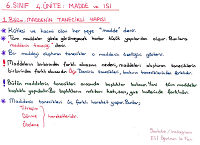 6. SINIF 4. ÜNİTE: MADDE ve ISI
1. Bölüm: MADDENİN TANECİKLİ YAPISI
Kütlesi ve hacmi olan her şeye "madde" denir.
Tüm maddeler gözle görülmeyecek kadar küçük yapılardan oluşur. Bunlara
maddenin taneciği denir.
Bir maddeyi oluşturan tanecikler o maddenin özelliğini gösterir.
Maddelerin birbirinden farklı olmasının nedeni, maddeleri oluşturan taneciklerin
birbirinden farklı olmasıdır.
Bütün maddelerin tanecikleri arasında boşluklar bulunur. Yani tüm maddeler
boşluklu yapıdadır. Bu boşlukların miktarı katı, sıvı, gaz hallerinde farklıdır.
Maddenin tanecikleri üç farklı hareket yapar. Bunlar;
Titreşim
Dönme
Öteleme
hareketleridir.